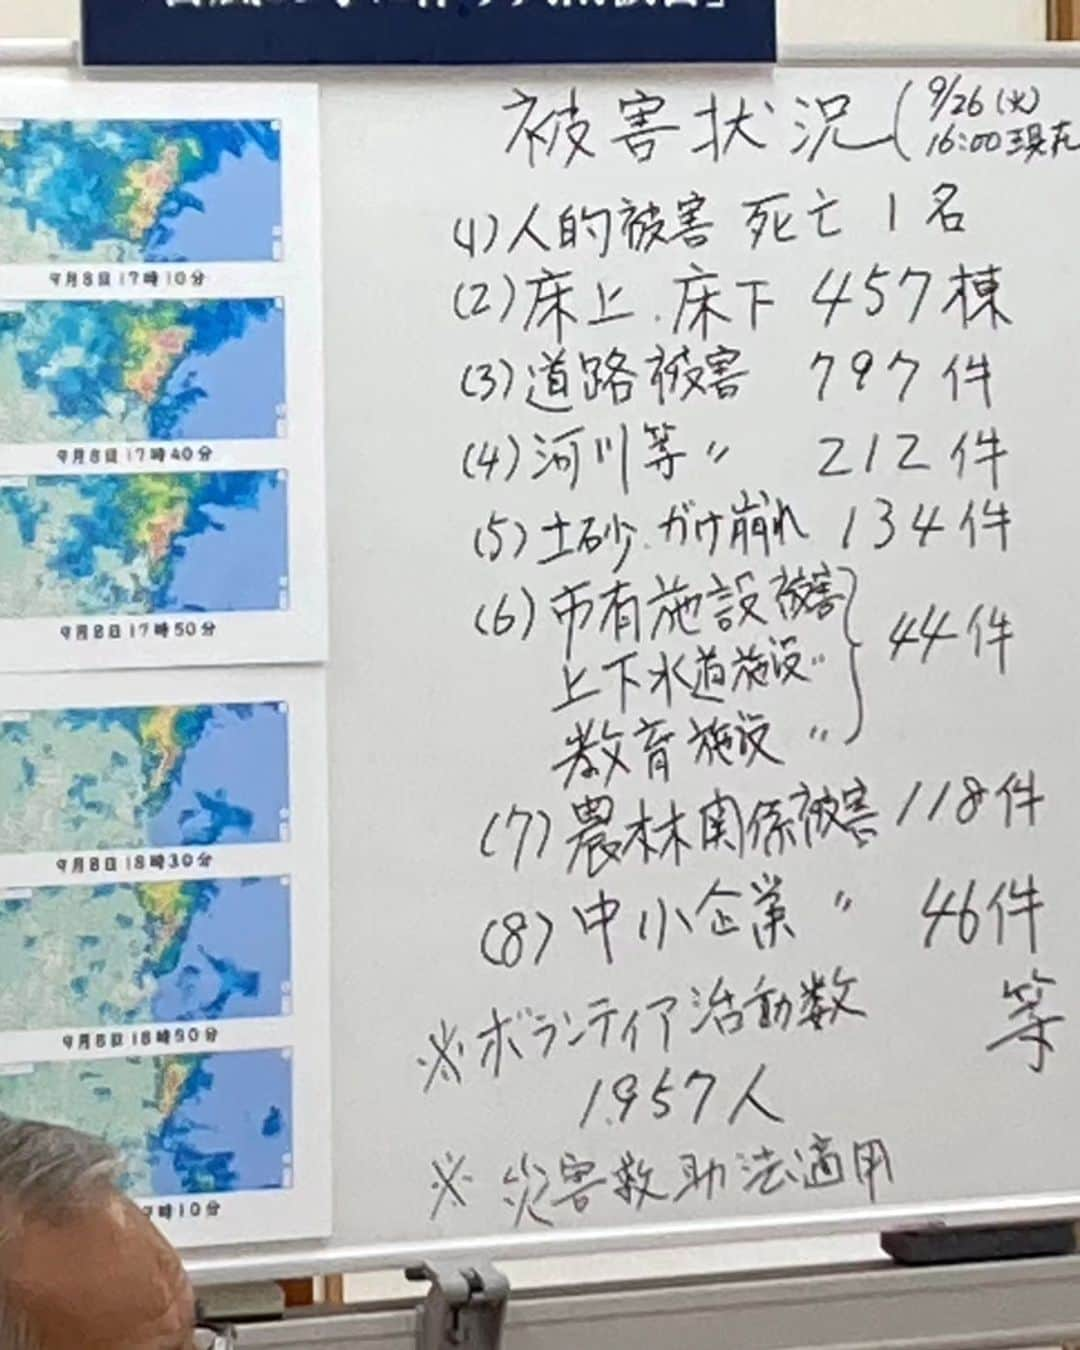 被害状況(9/26(火)
16:00現在
(1)人的被害 死亡 1名
(2)床上.床下 457棟
(3)道路被害 797件
(4)河川等〃 212件
(5)土砂.がけ崩れ 134件
(6)市有施設被害
上下水道施設〃
教育施設〃
44件
(7)農林関係被害 118件
(8)中小企業〃 46件
等
※ボランティア活動数
1,957人
※災害救助法適用
9月8日17時10分
9月8日17時40分
9月8日17時50分
9月8日18時30分
9月8日18時50分
時10分